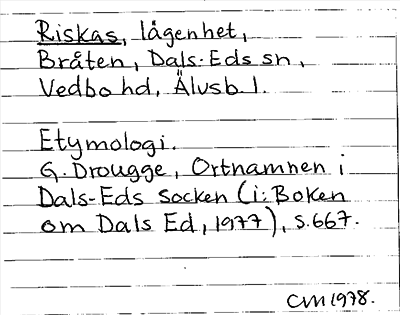 Riskas, lägenhet,
Bråten, Dals-Eds sn,
Vedbo hd, Älvsb. l.
Etymologi.
G. Drougge, Ortnamnen i
Dals-Eds socken (i: Boken
om Dals Ed, 1977), s. 667.
CM 1978.